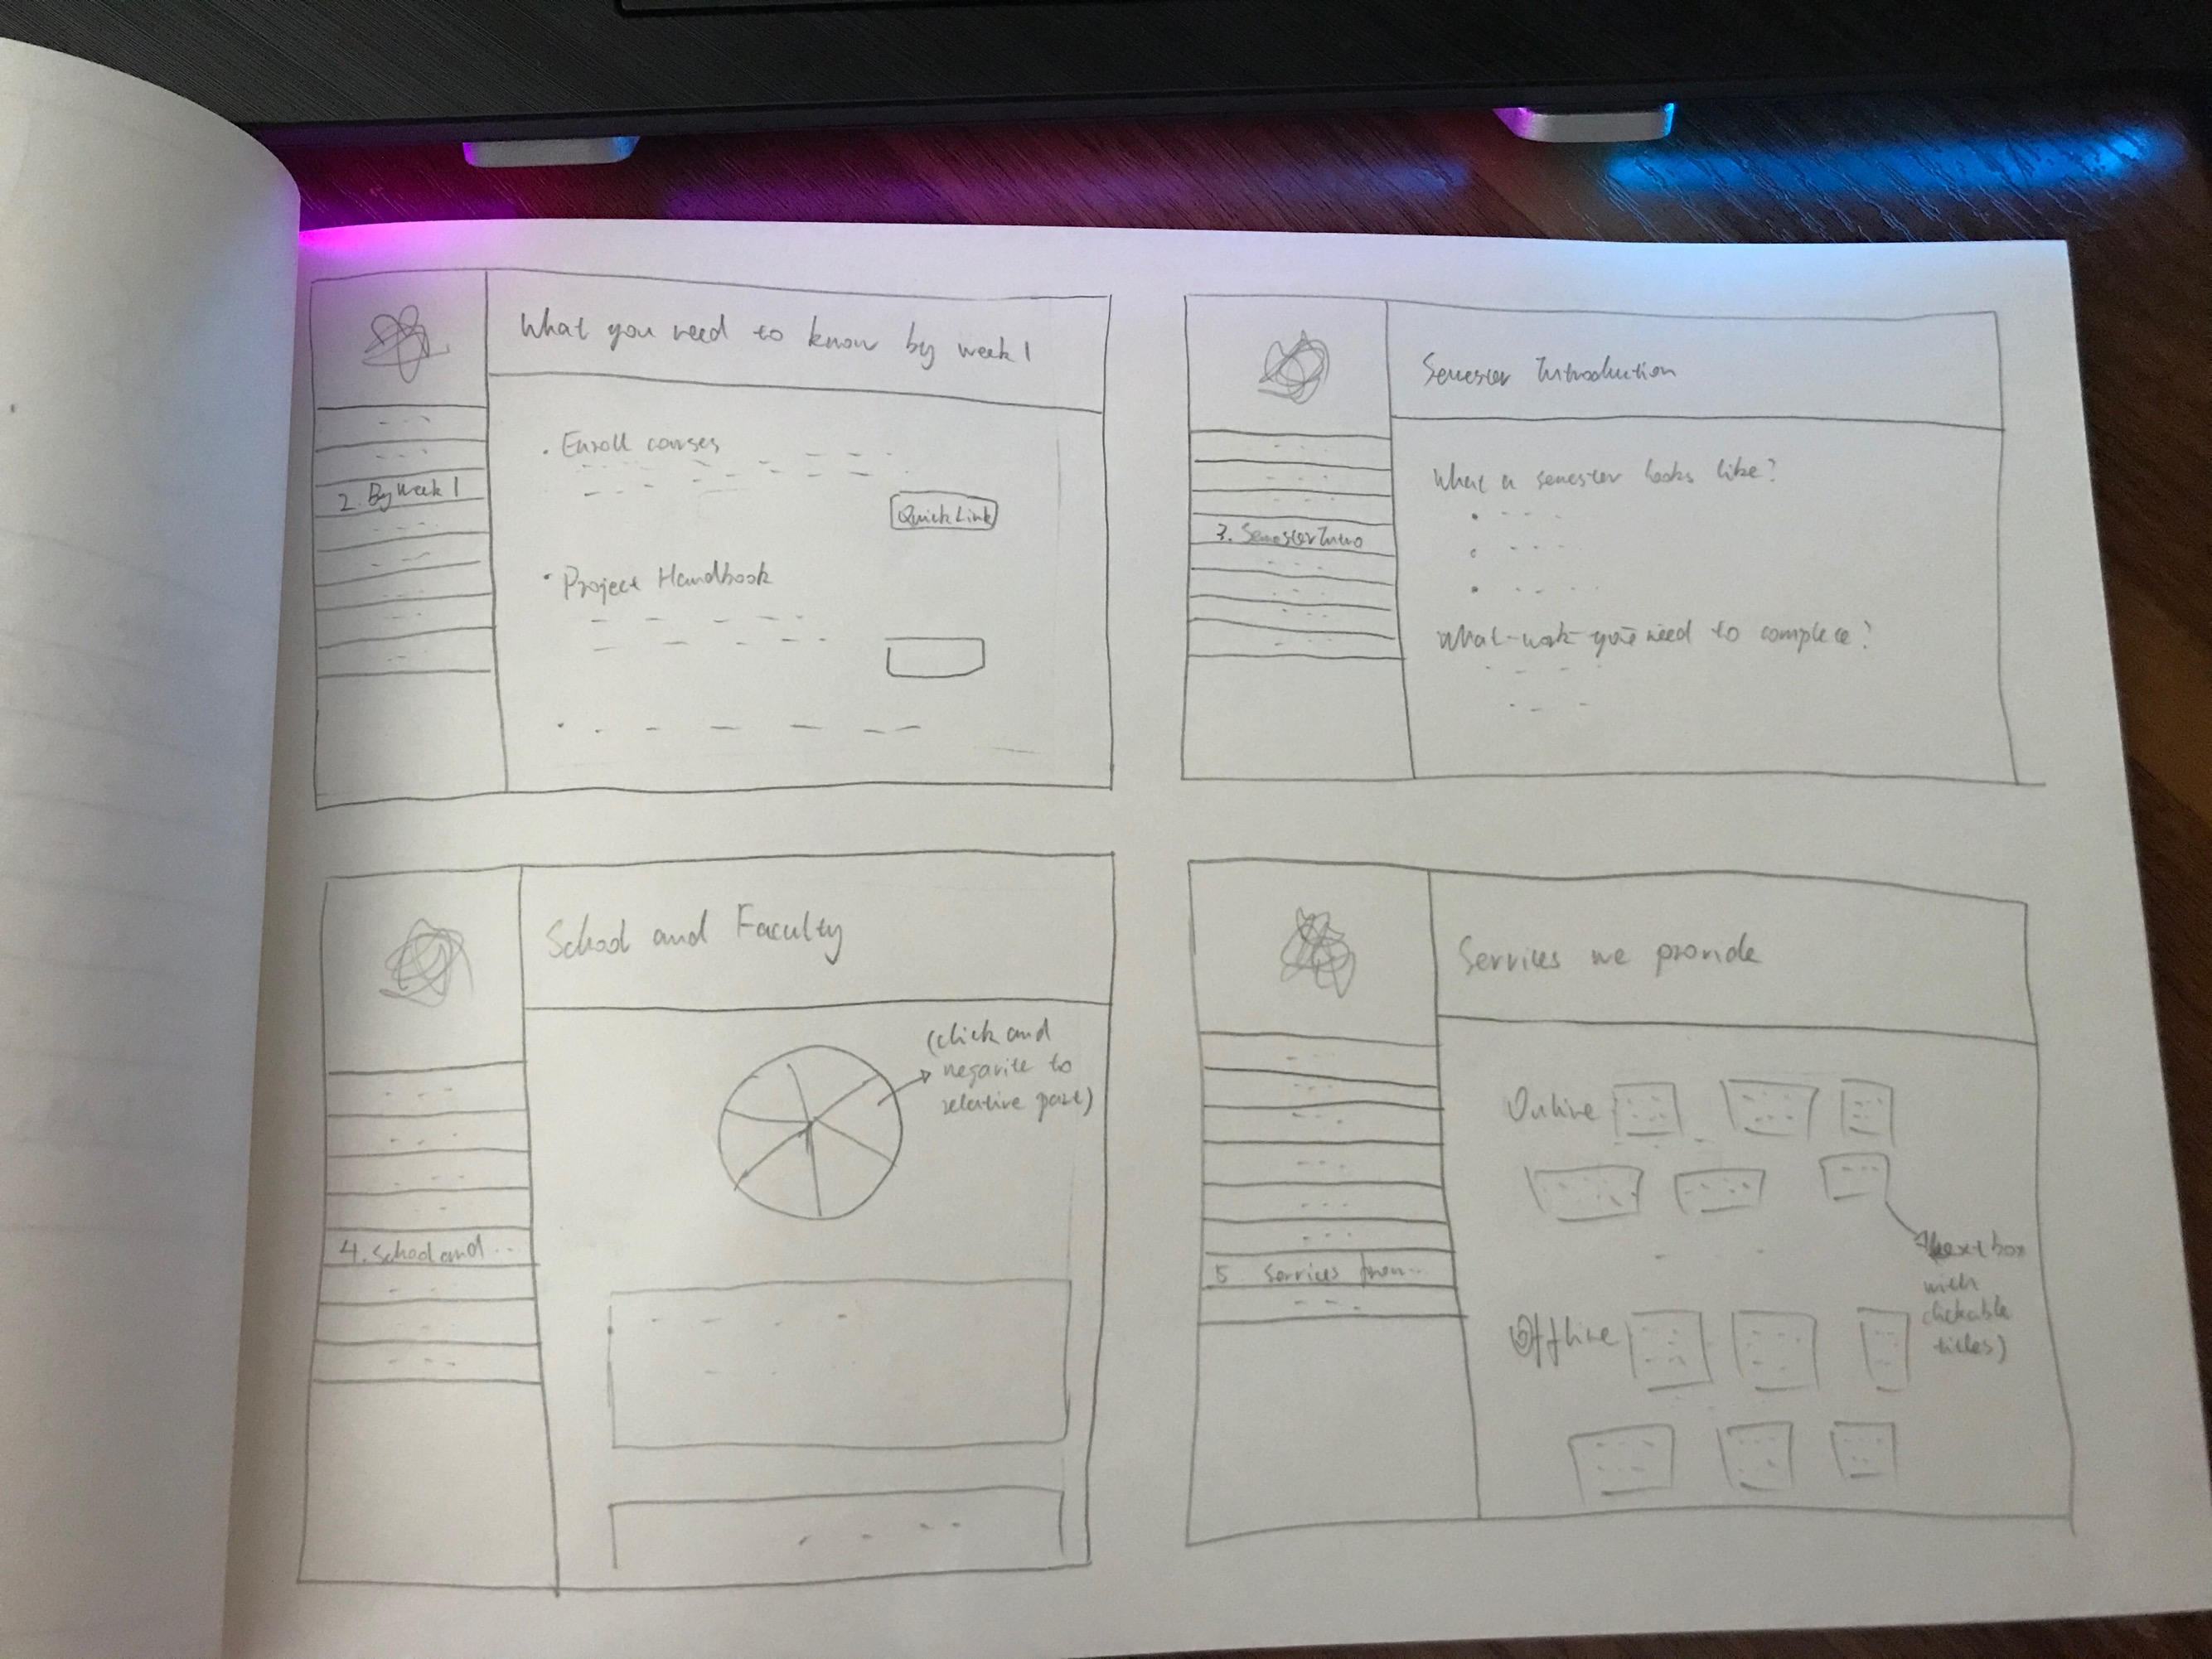 What you need to know by week 1
2. By Week 1
• Enroll courses
Quick Link
• Project Handbook
Semester Introduction
3. Semester Intro
What a semester looks like?
What work you need to complete?
School and Faculty
4. School and ...
(click and
negarite to
relative part)
Services we provide
5 Services from...
Online
Offline
text box
with
clickable
titles)